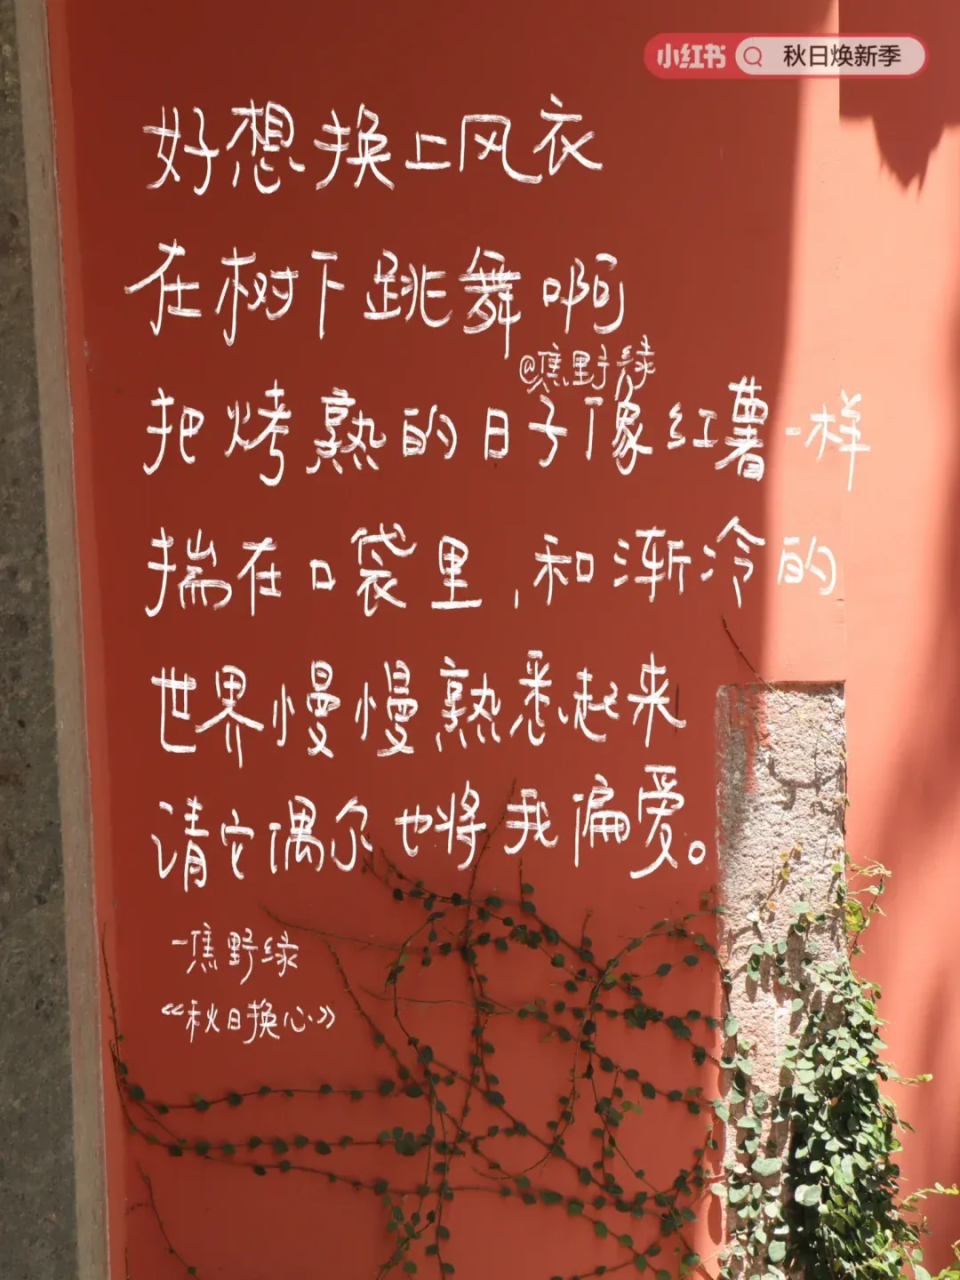 小红书 秋日焕新季
好想换上风衣
在树下跳舞啊
@焦野绿
把烤熟的日子像红薯一样
揣在口袋里,和渐冷的
世界慢慢熟悉起来
请它偶尔也将我偏爱。
-焦野绿
《秋日换心》